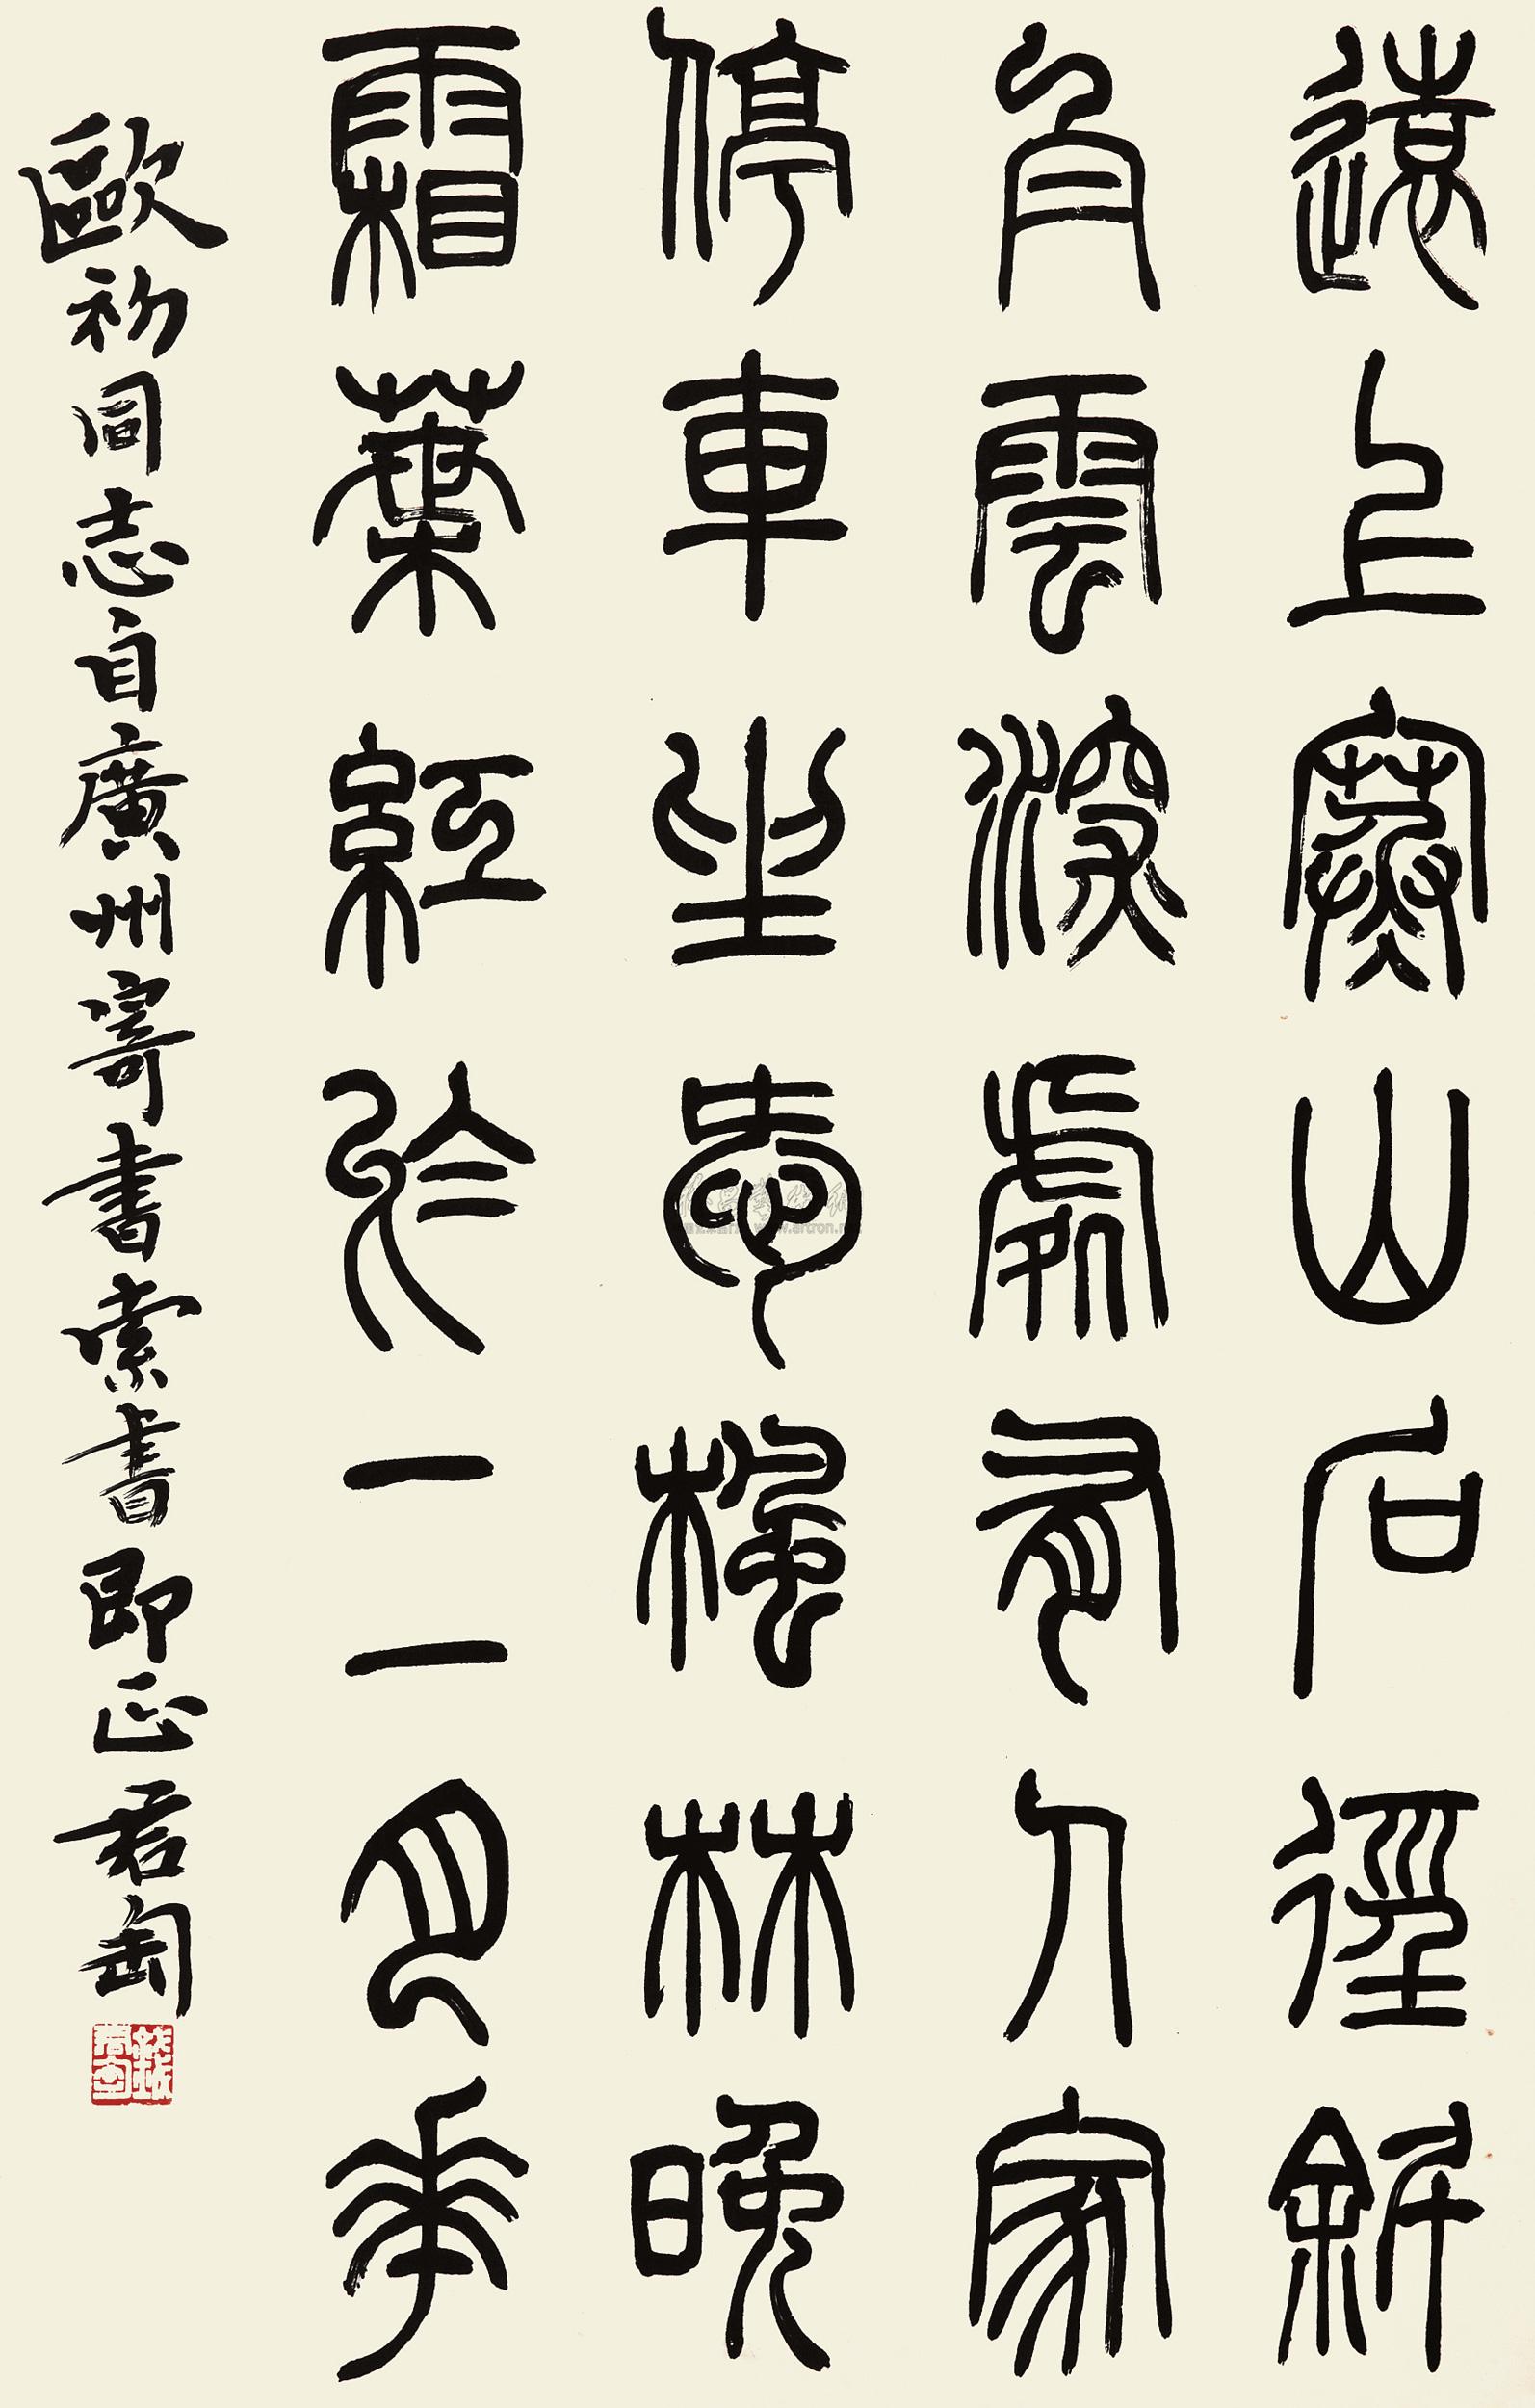 遠上寒山石徑斜
白雲深處有人家
停車坐愛楓林晚
霜葉紅於二月華
歐初同志自廣州寄書索書即正君匋